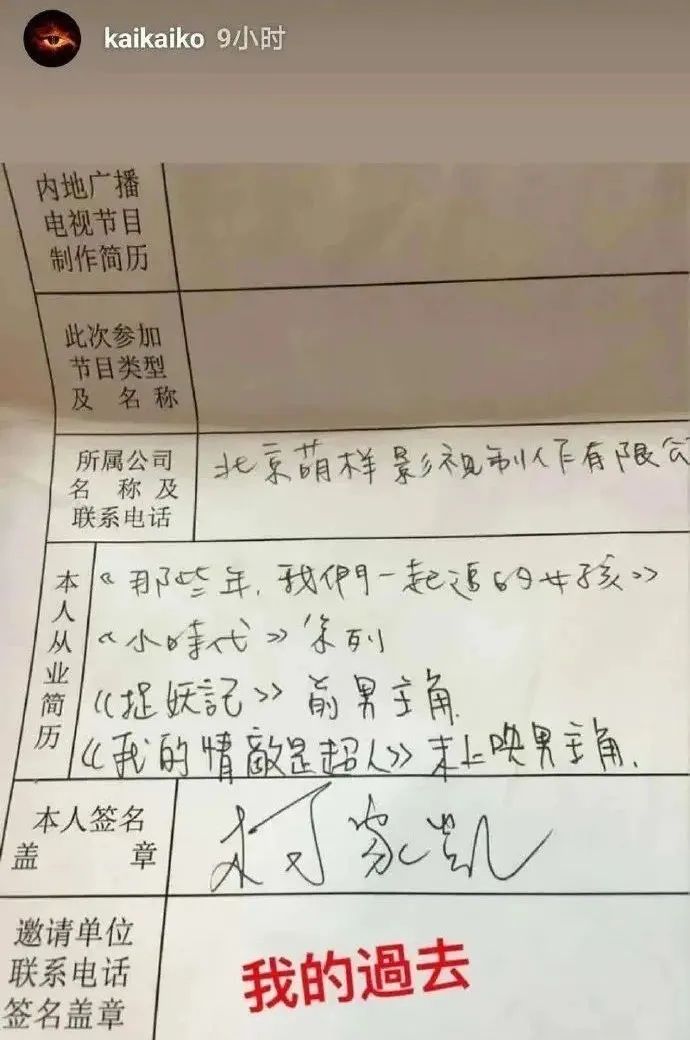 kaikaiko 9小时
内地广播
电视节目
制作简历
此次参加
节目类型
及 名 称
所属公司
名 称 及
联系电话
北京萌样影视制作有限公
本人从业简历
《那些年，我們一起追的女孩》
《小時代》系列
《捉妖記》前男主角.
《我的情敵是超人》未上映男主角.
本人签名
盖 章
柯家凯
邀请单位
联系电话
签名盖章
我的過去